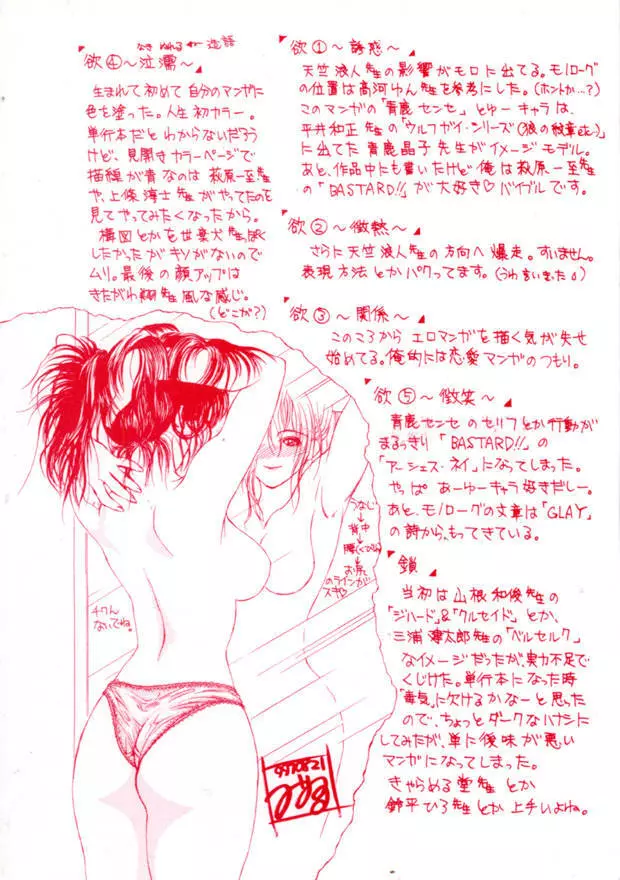 欲①～誘惑～
天竺浪人先生の影響がモロに出てる。モノローグ
の位置は高河ゆん先生を参考にした。(ホントか…?)
このマンガの「青鹿センセ」とゆーキャラは、
平井和正先生の「ウルフガイ・シリーズ(狼の紋章etc…)
に出てた青鹿晶子先生がイメージモデル。
あと、作品中にも書いたけど俺は萩原一至先生
の「BASTARD!!」が大好き♡バイブルです。
欲②～微熱～
さらに天竺浪人先生の方向へ爆走。すいません。
表現方法とかパクってます。(うわ言いきった)
欲③～関係～
このころからエロマンガを描く気が失せ
始めてる。俺的には恋愛マンガのつもり。
なき ぬれる ← 造語
欲④～泣濡～
生まれて初めて自分のマンガに
色を塗った。人生初カラー。
単行本だとわからないだろう
けど、見開きカラーページで
描線が青なのは萩原一至先生
や、上條淳士先生がやってたのを
見てやってみたくなったから。
構図とかを世楽犬先生ぽく
したかったがキソがないので
ムリ。最後の顔アップは
きたがわ翔先生風な感じ。
(どこが?)
欲⑤～微笑～
青鹿センセのセリフとか行動が
まるっきり「BASTARD!!」の
「アーシェス・ネイ」になってしまった。
やっぱあーゆーキャラ好きだしー。
あと、モノローグの文章は「GLAY」
の詩から、もってきている。
鎖
当初は山根和俊先生の
「ジハード」&「クルセイド」とか、
三浦建太郎先生の「ベルセルク」
なイメージだったが、実力不足で
くじけた。単行本になった時
「毒気」に欠けるかなーと思った
ので、ちょっとダークなハナシに
してみたが、単に後味が悪い
マンガになってしまった。
きゃらめる堂先生とか
鈴平ひろ先生とか上手いよね。
うなじ
↓
背中
↓
腰(くびれ)
↓
お尻
のラインが
スキ♡
チクん
ないでね。
970821